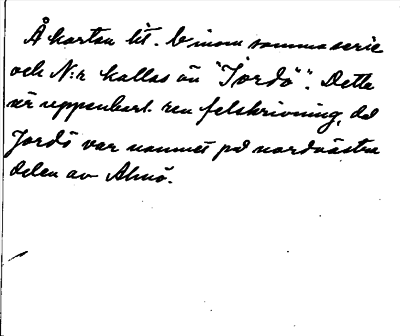 Å kartan lit. b inom samma serie
och N:r kallas ön "Jordö". Detta
är uppenbart ren felskrivning, då
Jordö var namnet på nordvästra
delen av Almö.